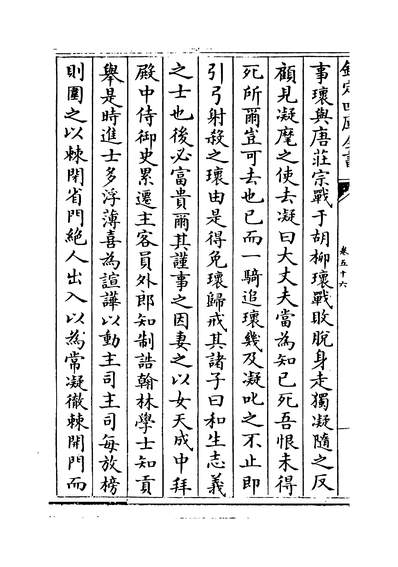 欽定四庫全書
卷五十六
事瓌與唐莊宗戰于胡柳瓌戰敗脫身走獨凝隨之反
顧見凝麾之使去凝曰大丈夫當為知已死吾恨未得
死所爾豈可去也已而一騎追瓌幾及凝叱之不止即
引弓射殺之瓌由是得免瓌歸戒其諸子曰和生志義
之士也後必富貴爾其謹事之因妻之以女天成中拜
殿中侍御史累遷主客員外郎知制誥翰林學士知貢
舉是時進士多浮薄喜為諠譁以動主司主司每放榜
則圍之以棘閉省門絕人出入以為常凝徹棘開門而